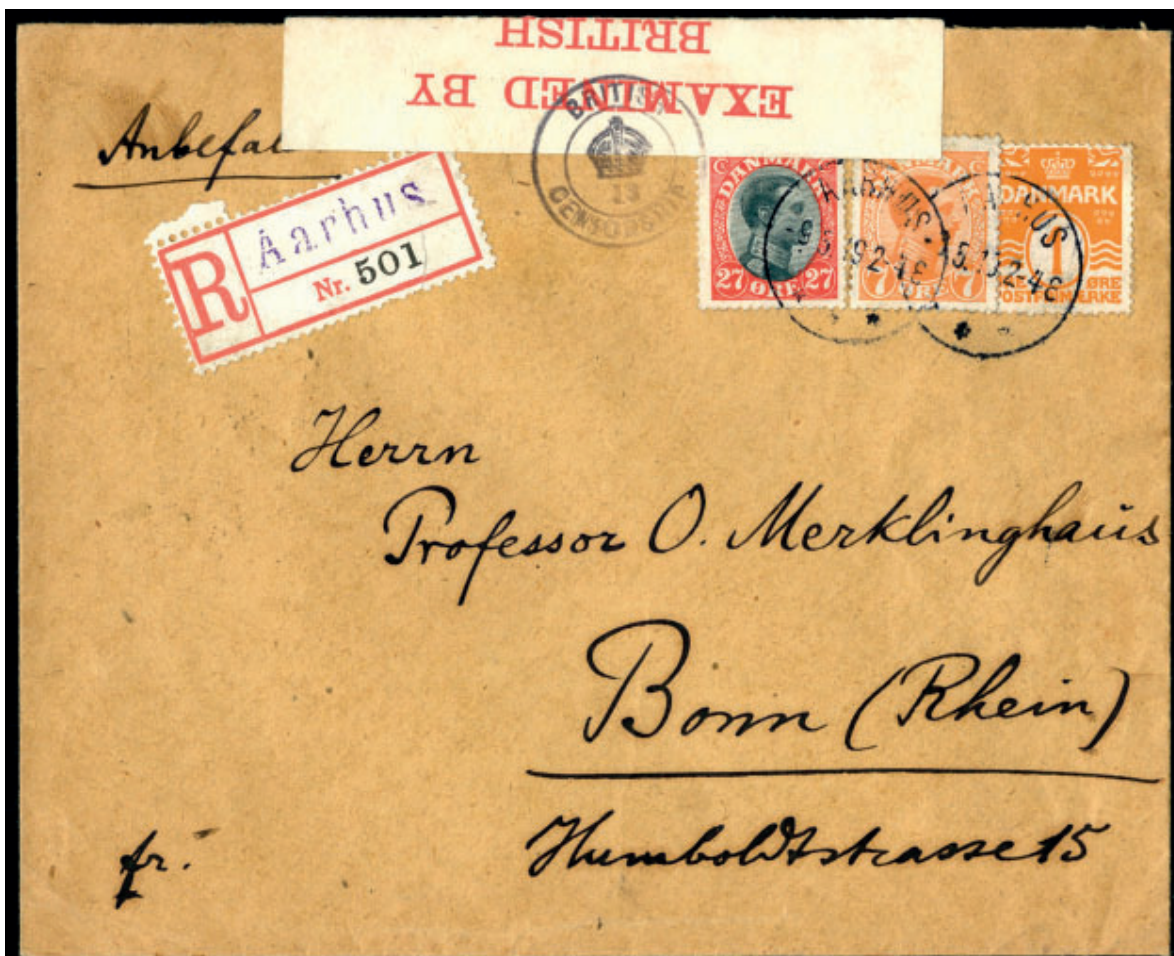 BRITISH
EXAMINED BY
Anbefal
BRITISH
13
CENSORSHIP
R
Aarhus
Nr. 501
DANMARK
27 ØRE 27
DANMARK
7 ØRE 7
DANMARK
1
ØRE
POSTFRIMÆRKE
AARHUS
AARHUS
Herrn
Professor O. Merklinghaus
Bonn (Rhein)
Humboldtstrasse 15
fr.